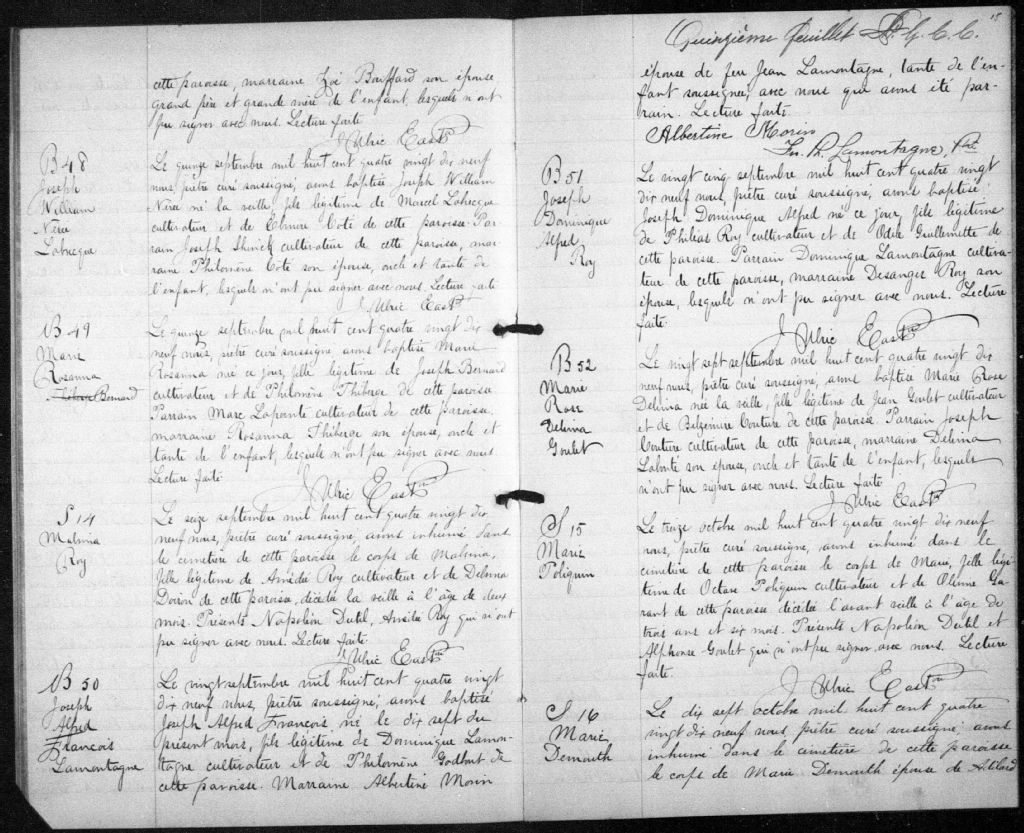 cette paroisse, marraine Zoé Bouffard son épouse
grand père et grand mère de l'enfant, lesquels n'ont
pu signer avec nous. Lecture faite.
J. Ulric East ptre
B 48
Joseph
William
Nérée
Labrecque
Le quinze septembre mil huit cent quatre vingt dix neuf
nous, prêtre curé soussigné, avons baptisé Joseph William
Nérée né la veille, fils légitime de Marcel Labrecque
cultivateur et de Elmire Coté de cette paroisse. Par
rain Joseph cultivateur de cette paroisse, mar
raine Philomène Coté son épouse, oncle et tante de
l'enfant, lesquels n'ont pu signer avec nous. Lecture faite
J. Ulric East ptre
B 49
Marie
Rosanna
Bernard
Le quinze septembre mil huit cent quatre vingt dix
neuf nous, prêtre curé soussigné, avons baptisé Marie
Rosanna née ce jour, fille légitime de Joseph Bernard
cultivateur et de Philomène Thiberge de cette paroisse
Parrain Marc Lapointe cultivateur de cette paroisse
marraine Rosanna Thiberge son épouse, oncle et
tante de l'enfant, lesquels n'ont pu signer avec nous
Lecture faite.
J. Ulric East ptre
S 14
Malvina
Roy
Le seize septembre mil huit cent quatre vingt dix
neuf nous, prêtre curé soussigné, avons inhumé dans
le cimetière de cette paroisse le corps de Malvina,
fille légitime de Amédée Roy cultivateur et de Delvina
Doiron de cette paroisse, décédée la veille à l'âge de deux
mois. Présents Napoléon Dutil, Amédée Roy qui n'ont
pu signer avec nous. Lecture faite.
J. Ulric East ptre
B 50
Joseph
Alfred
François
Lamontagne
Le vingt septembre mil huit cent quatre vingt
dix neuf nous, prêtre soussigné, avons baptisé
Joseph Alfred François né le dix sept du
présent mois, fils légitime de Dominique Lamon-
tagne cultivateur et de Philomène Godbout de
cette paroisse. Marraine Albertine Morin
15
Quinzième feuillet G. C. C.
épouse de feu Jean Lamontagne, tante de l'en-
fant soussignée, avec nous qui avons été par-
rain. Lecture faite.
Albertine Morin
Lamontagne, Ptre
B 51
Joseph
Dominique
Alfred
Roy
Le vingt cinq septembre mil huit cent quatre vingt
dix neuf nous, prêtre curé soussigné, avons baptisé
Joseph Dominique Alfred né ce jour, fils légitime
de Philias Roy cultivateur et de Odie Guillemette de
cette paroisse. Parrain Dominique Lamontagne cultiva-
teur de cette paroisse, marraine Desanges Roy son
épouse, lesquels n'ont pu signer avec nous. Lecture
faite.
J. Ulric East ptre
B 52
Marie
Rose
Delima
Goulet
Le vingt sept septembre mil huit cent quatre vingt dix
neuf nous, prêtre curé soussigné, avons baptisé Marie Rose
Delima née la veille, fille légitime de Jean Goulet cultivateur
et de Belzemire Couture de cette paroisse. Parrain Joseph
Couture cultivateur de cette paroisse, marraine Delima
Labonté son épouse, oncle et tante de l'enfant, lesquels
n'ont pu signer avec nous. Lecture faite
J. Ulric East ptre
S 15
Marie
Poliquin
Le treize octobre mil huit cent quatre vingt dix neuf
nous, prêtre curé soussigné, avons inhumé dans le
cimetière de cette paroisse le corps de Marie, fille légi
time de Octave Poliquin cultivateur et de Olivine Ga
rant de cette paroisse décédée l'avant veille à l'âge de
trois ans et six mois. Présents Napoléon Dutil et
Alphonse Goulet qui n'ont pu signer avec nous. Lecture
faite.
J. Ulric East ptre
S 16
Marie
Demouth
Le dix sept octobre mil huit cent quatre
vingt dix neuf nous, prêtre curé soussigné, avons
inhumé dans le cimetière de cette paroisse
le corps de Marie Demouth épouse de